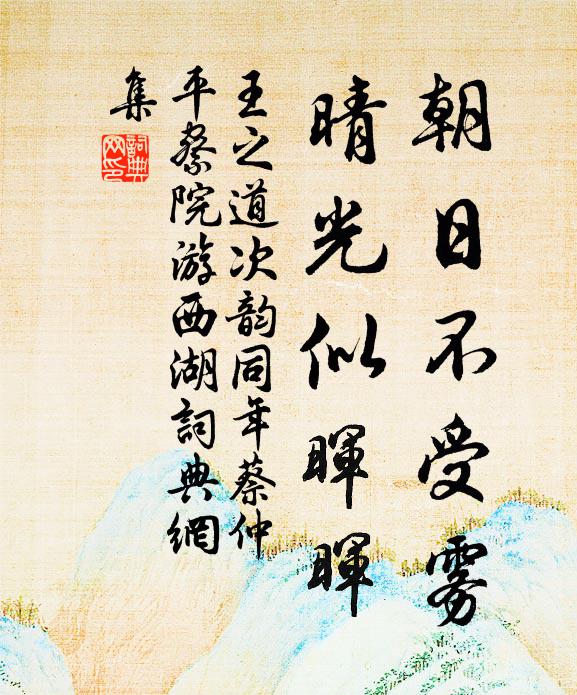 朝日不受雾
晴光似暉暉
王之道次韵同年蔡仲
平察院游西湖詞典網
集
詞典
网印